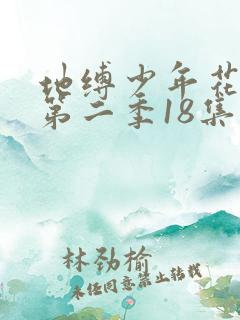 地缚少年花
第二季18集
林劲榆
未经同意禁止转载